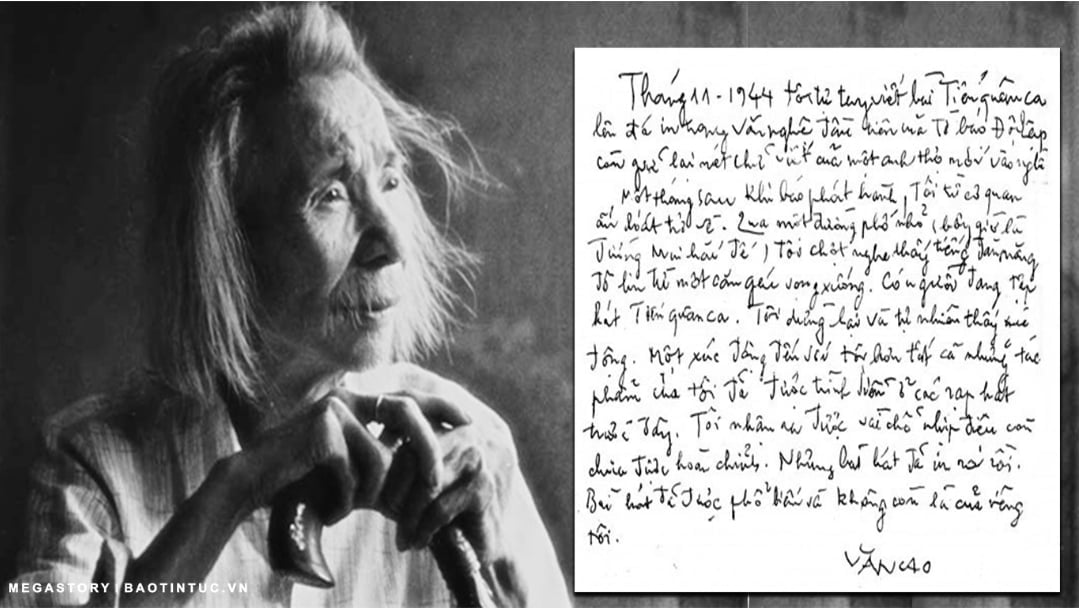 Tháng 11-1944 tôi tự tay viết bài Tiến quân ca
lên đá in trong Văn nghệ đầu tiên của tờ báo Độc lập
còn lại nét chữ viết của một anh thợ mới vào nghề
Một tháng sau khi báo phát hành, tôi từ cơ quan
ấn loát trở về. Qua một đường phố nhỏ (bây giờ là
đường Mai Hắc Đế) tôi chợt nghe thấy tiếng đàn măng
đô lin từ một căn gác vọng xuống. Có người đang tập
hát Tiến quân ca. Tôi dừng lại và tự nhiên thấy xúc
động. Một xúc động đến với tôi hơn tất cả những tác
phẩm của tôi đã được trình diễn ở các rạp hát
trước đây. Tôi nhận ra được vài chỗ nhịp điệu còn
chưa được hoàn chỉnh. Những bài hát đã in ra rồi.
Bài hát đã được phổ biến và không còn là của riêng
tôi.
VĂN CAO
MEGASTORY | BAOTINTUC.VN